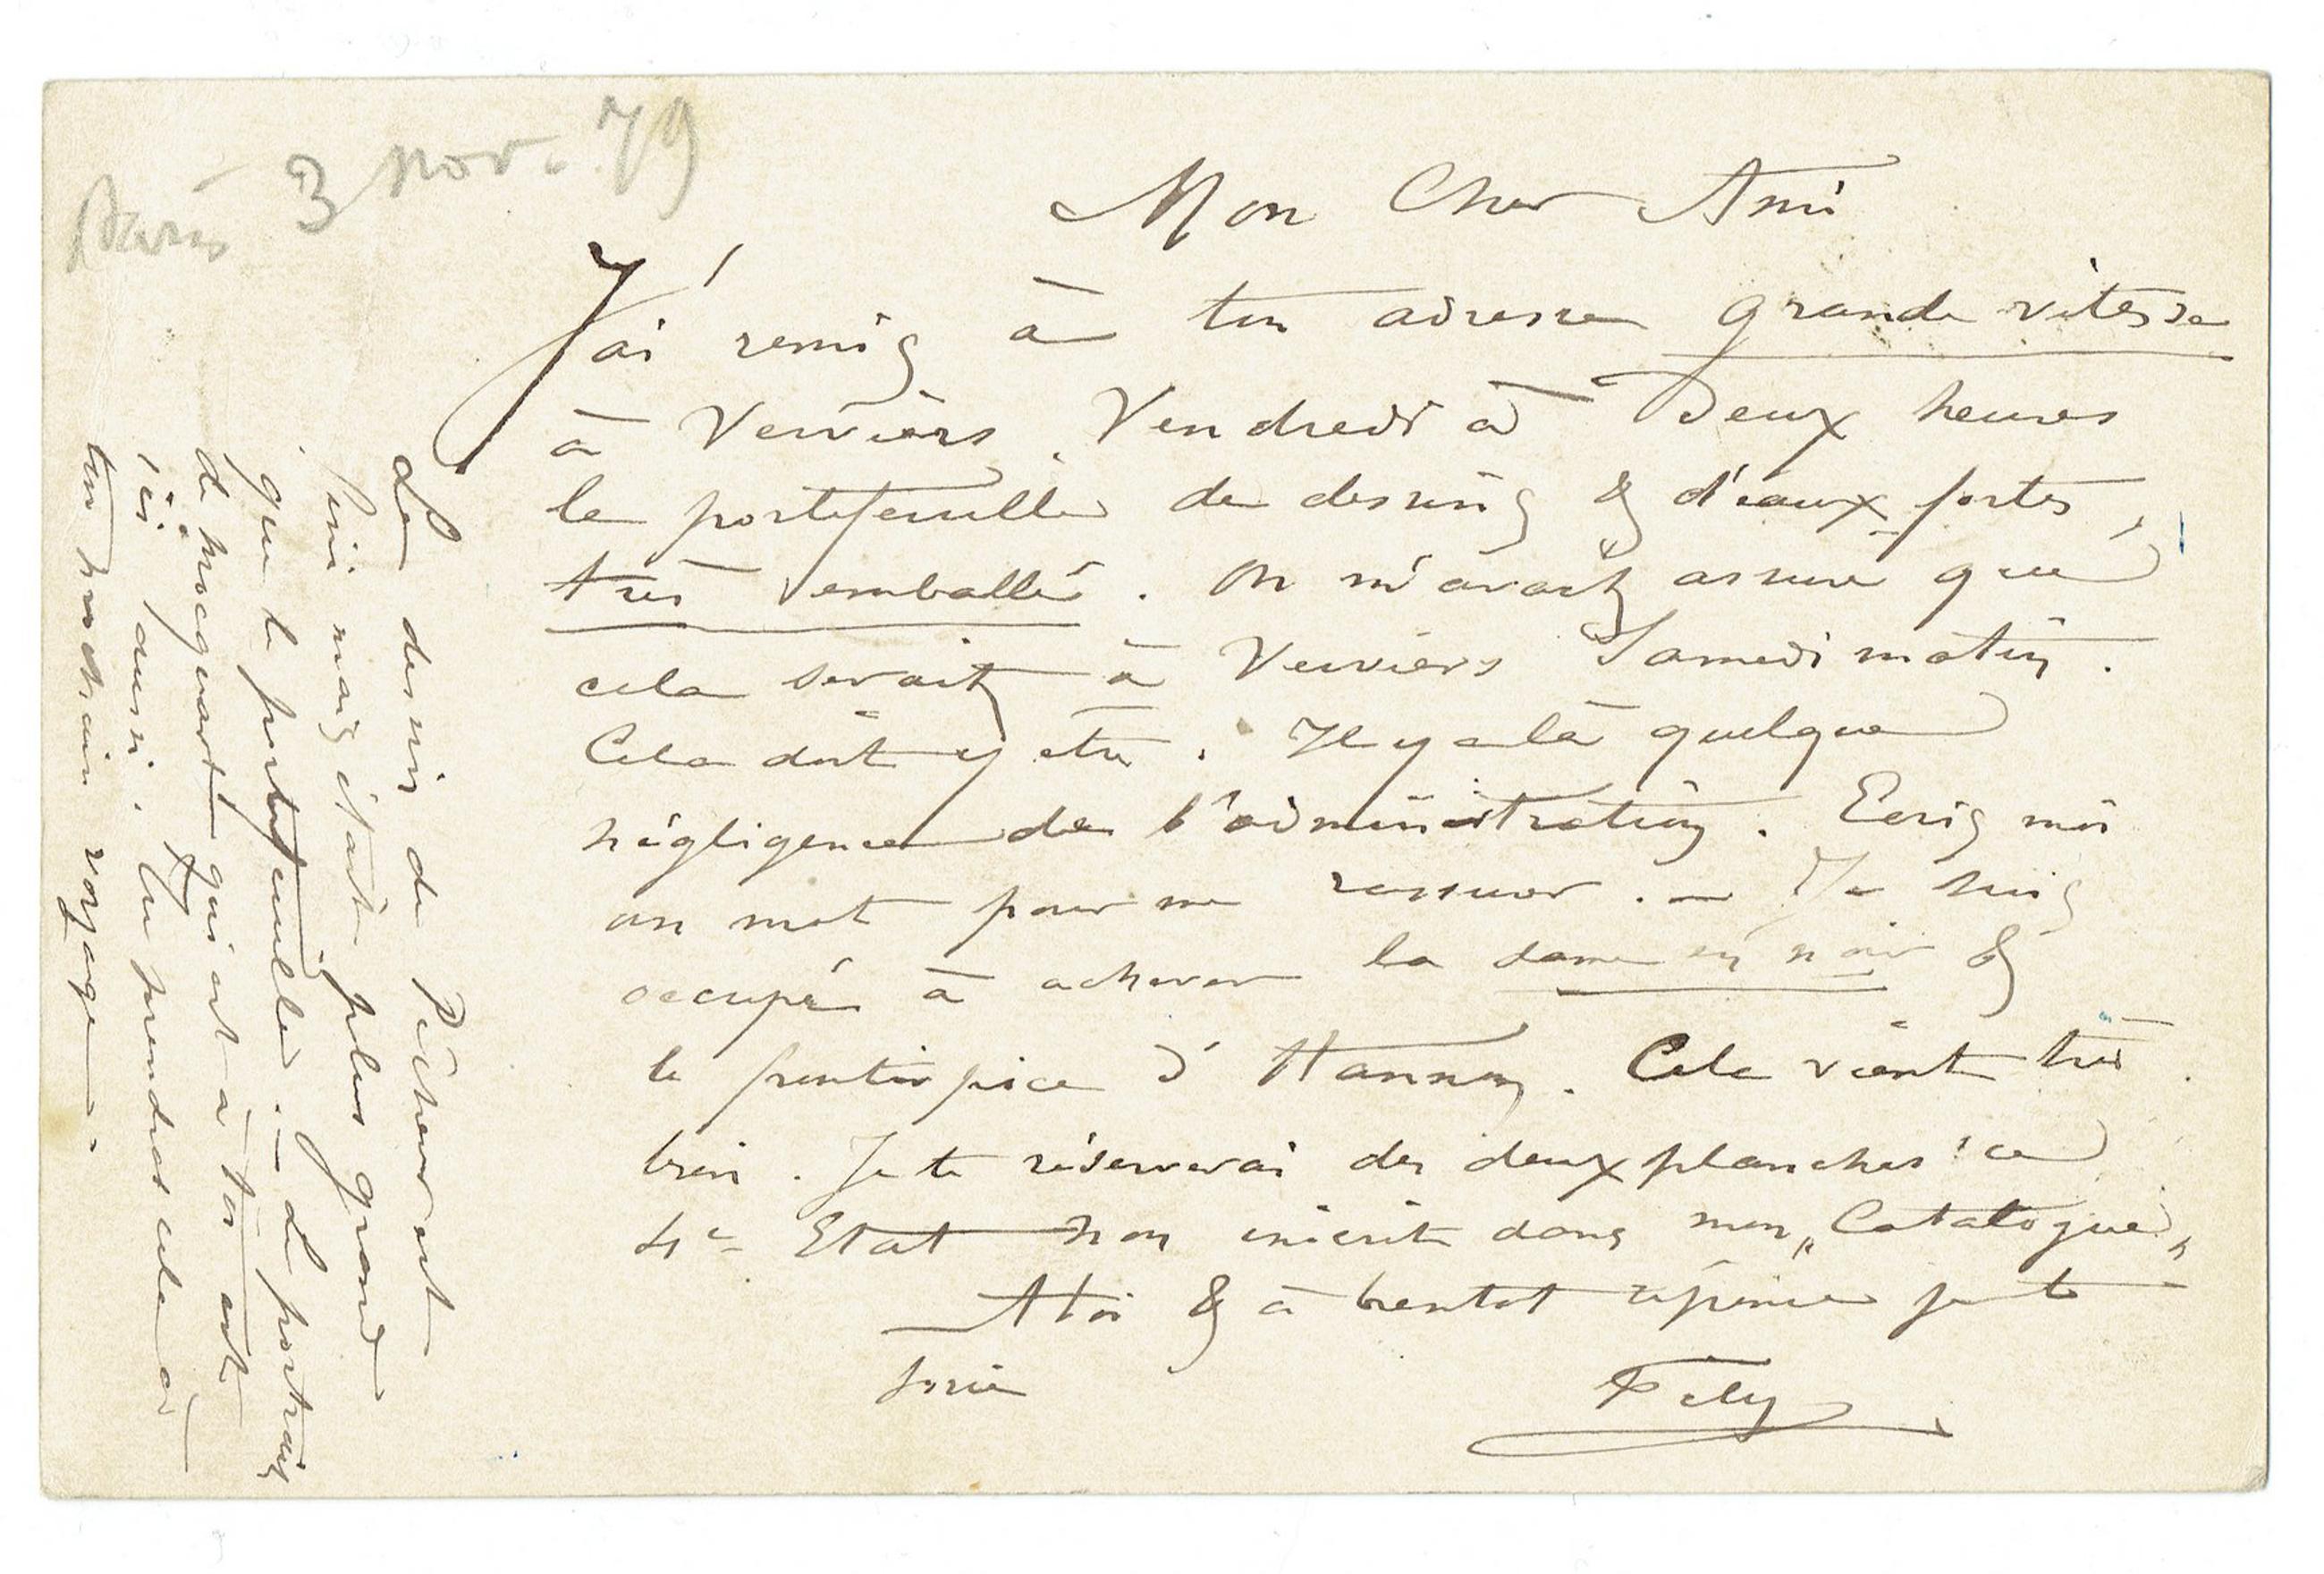 Paris 3 nov. 79
Mon Cher Ami
J'ai remis à ton adresse grande vitesse
à Verviers Vendredi à Deux heures
le portefeuille de dessins & d'eaux-fortes,
très emballé. On m'avait assuré que
cela serait à Verviers Samedi matin.
Cela doit y être. Il y a là quelque
négligence de l'administration. Ecris moi
un mot pour me rassurer. — Je suis
occupé à achever la dame en noir &
le frontispice d'Hannon. Cela vient très
bien. Je te réserverai des deux planches ce
4e Etat non inscrit dans mon „Catalogue„
A toi & à bientot réponse je te
prie
Fély
Le dessin du Pêcheur est
fini mais était plus grand
que le portefeuille. — Le portrait
de qui est à toi est
ici aussi. Tu prendras cela à
ton prochain voyage.